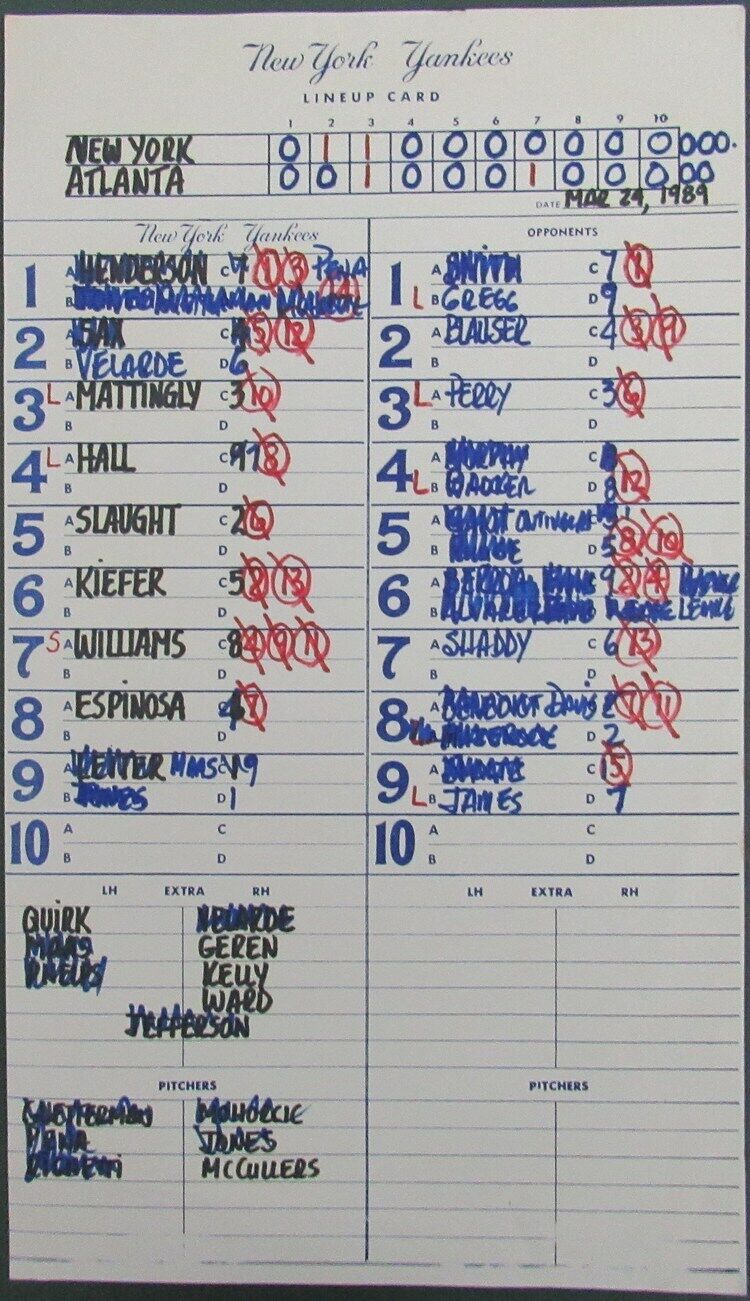 New York Yankees
LINEUP CARD
1 2 3 4 5 6 7 8 9 10
NEW YORK 0 1 1 0 0 0 0 0 0 0 000.
ATLANTA 0 0 1 0 0 0 1 0 0 0 00
DATE MAR 24, 1989
New York Yankees
1 A HENDERSON C 7 1 3 PENA
B MOHORCIC 14
2 A SAX C 4 5 12
B VELARDE D 6
3 L A MATTINGLY C 3 10
B D
4 L A HALL C 9 7 8
B D
5 A SLAUGHT C 2 6
B D
6 A KIEFER C 5 2 13
B D
7 S A WILLIAMS C 8 4 9 11
B D
8 A ESPINOSA C 6 7
B D
9 A LEITER MAAS C 1 9
B JONES D 1
10 A C
B D
OPPONENTS
1 A SMITH C 7 1
L B GREGG D 9
2 A BLAUSER C 4 3 9
B D
3 L A PERRY C 3 6
B D
4 A MURPHY C 8
L B D 8 12
5 A C
B D 5 8 10
6 A C 9 2 4
B ALVAREZ
7 A SHADDY C 6 13
B D
8 A BENEDICT DAVIS C 2 7 11
B D 2
9 A SMOLTZ C 1 5
L B JAMES D 7
10 A C
B D
LH EXTRA RH
QUIRK VELARDE
MAAS GEREN
PHELPS KELLY
WARD
JEFFERSON
LH EXTRA RH
PITCHERS
GUETTERMAN MOHORCIC
PENA JONES
RIGHETTI MCCULLERS
PITCHERS